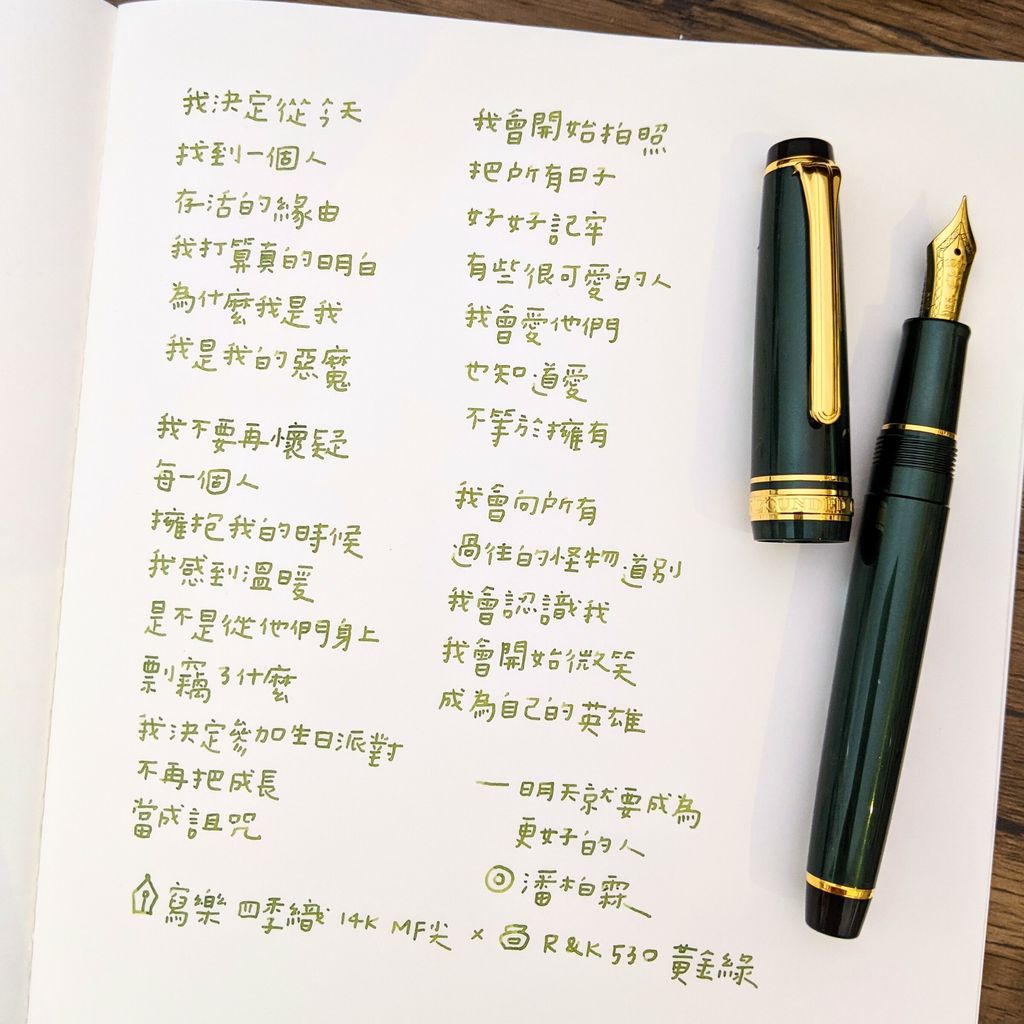 我決定從今天
找到一個人
存活的緣由
我打算真的明白
為什麼我是我
我是我的惡魔
我不要再懷疑
每一個人
擁抱我的時候
我感到溫暖
是不是從他們身上
剽竊了什麼
我決定參加生日派對
不再把成長
當成詛咒
我會開始拍照
把所有日子
好好記牢
有些很可愛的人
我會愛他們
也知道愛
不等於擁有
我會向所有
過往的怪物道別
我會認識我
我會開始微笑
成為自己的英雄
— 明天就要成為
更好的人
◎潘柏霖
寫樂 四季織 14K MF尖 × R&K 530 黃金綠
FOUNDED